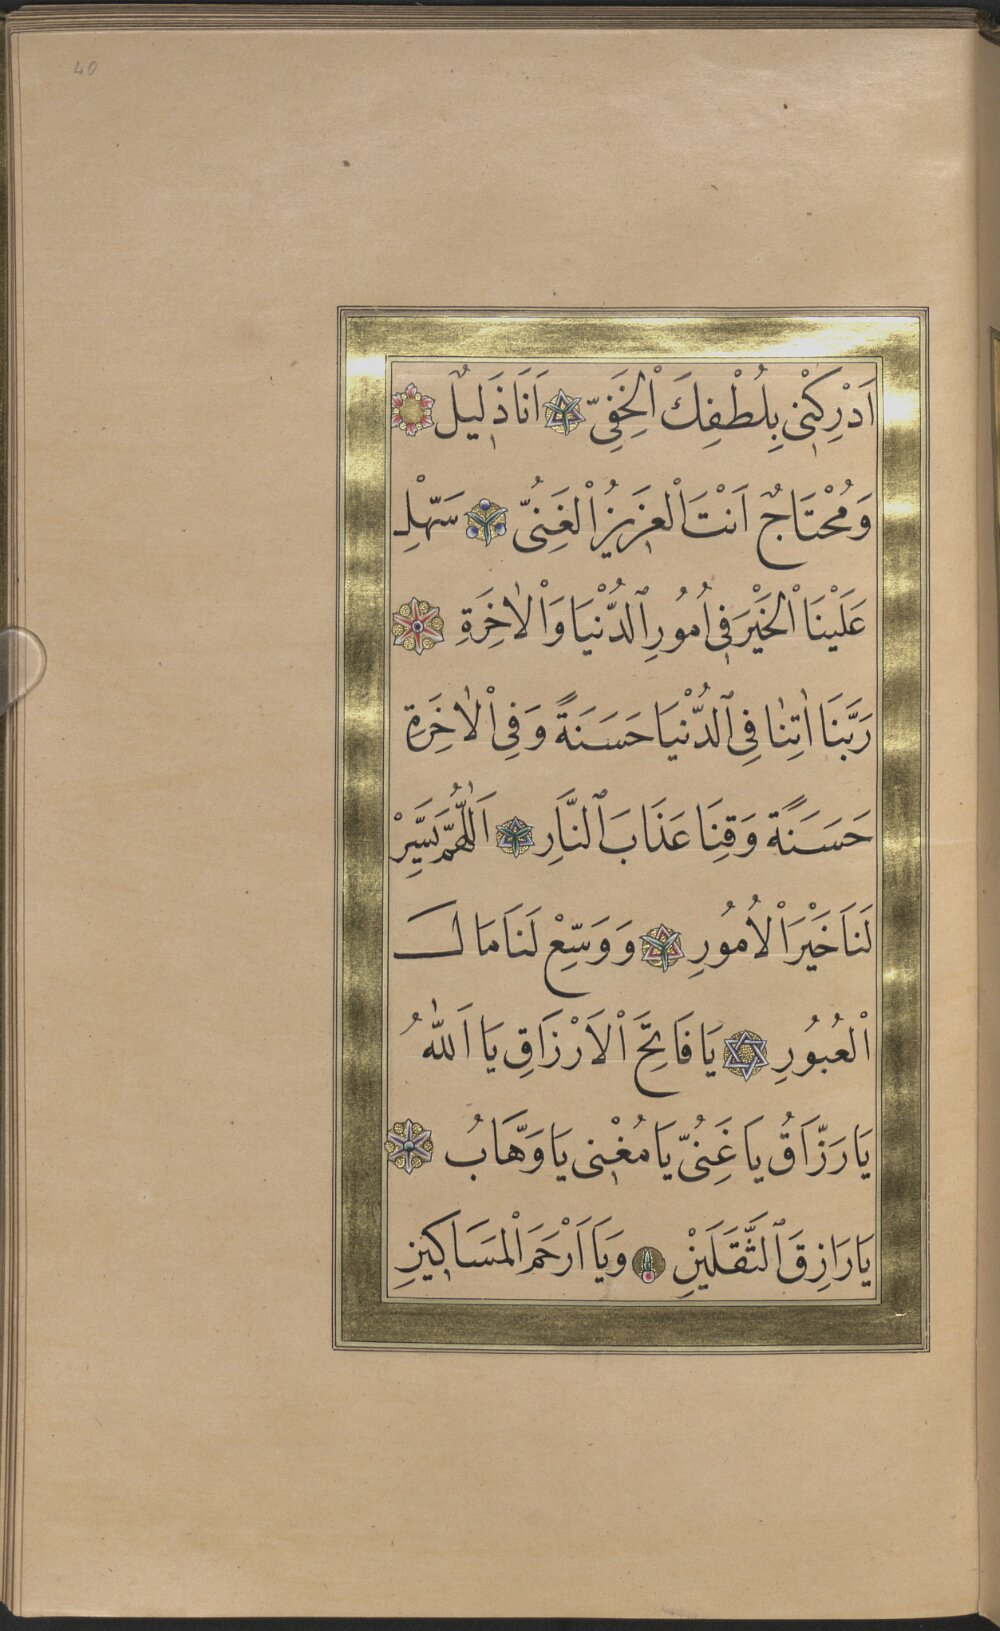 40
اَدْرِكْنٖى بِلُطْفِكَ الْخَفِىِّ اَنَا ذَلٖيلٌ
وَمُحْتَاجٌ اَنْتَ الْعَزٖيزُ الْغَنِىُّ سَهِّلْ
عَلَيْنَا الْخَيْرَ فٖى اُمُورِ الدُّنْيَا وَالْاٰخِرَةِ
رَبَّنَا اٰتِنَا فِى الدُّنْيَا حَسَنَةً وَفِى الْاٰخِرَةِ
حَسَنَةً وَقِنَا عَذَابَ النَّارِ اَللّٰهُمَّ يَسِّرْ
لَنَا خَيْرَ الْاُمُورِ وَوَسِّعْ لَنَا مَالَ
الْعُبُورِ يَا فَاتِحَ الْاَرْزَاقِ يَا اَللّٰهُ
يَا رَزَّاقُ يَا غَنِىُّ يَا مُغْنٖى يَا وَهَّابُ
يَا رَازِقَ الثَّقَلَيْنِ وَيَا اَرْحَمَ الْمَسَاكٖينِ